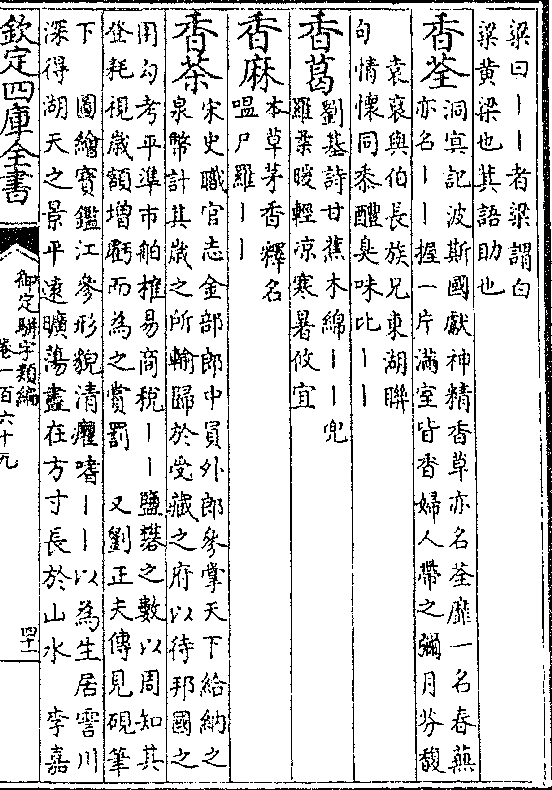 粱曰丨丨者粱謂白
粱黄粱也萁語助也
香荃
洞冥記波斯國獻神精香草亦名荃蘼一名春蕪
亦名丨丨握一片滿室皆香婦人帶之彌月芬馥
袁裒與伯長族兄東湖聯
句情懷同黍醴臭味比丨丨
香葛
劉基詩甘蕉木綿丨丨兜
羅葉暖輕凉寒暑攸宜
香麻
本草茅香釋名
嗢尸羅丨丨
香茶
宋史職官志金部郎中員外郎參掌天下給納之
泉幣計其歲之所輸歸於受藏之府以待邦國之
用勾考平準市舶榷易商稅丨丨鹽礬之數以周知其
登耗視歲額增虧而為之賞罰 又劉正夫傳見硯筆
下 圖繪寶鑑江參形貌清癯嗜丨丨以為生居霅川
深得湖天之景平遠曠蕩盡在方寸長於山水 李嘉
欽定四庫全書
御定駢字類編
卷一百六十九